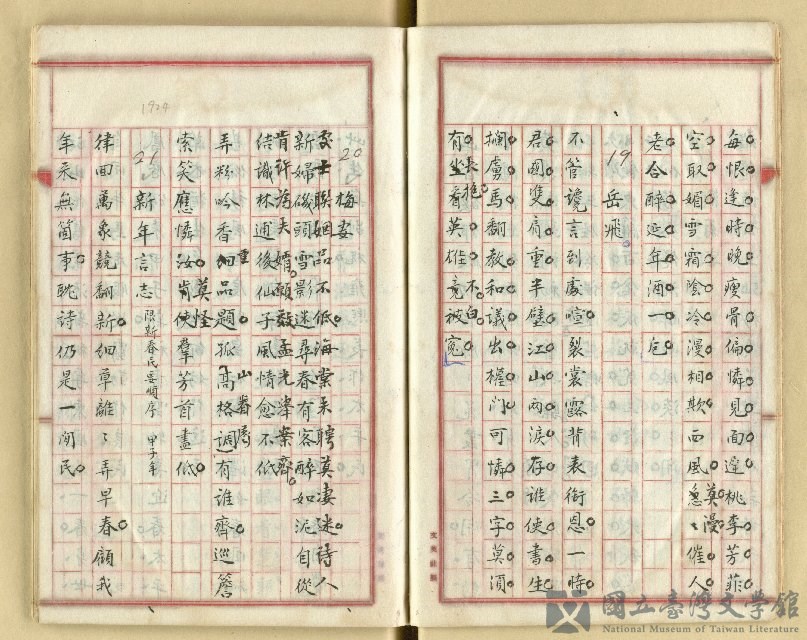 每恨逢時晚瘦骨偏憐見面遲桃李芳菲
空取媚雪霜陰冷漫相欺西風莫漫急々催人
老合醉延年酒一卮
19 岳飛
不管讒言到處喧裂裳露背表銜恩一時
君國雙肩重半壁江山兩淚存誰使書生
攔虜馬翻教和議出權門可憐三字莫須
有坐看英雄竟被冤
長抱 不白
20 梅妻
文士聯姻品不低海棠未聘莫淒迷詩人
新婦磯頭雪影迷尋春有客醉如泥自從
肯許為夫婿願效孟光舉案齊
結識林逋後仙子風情愈不低
弄粉吟香細品題孤高格調有誰齊巡簷
重 山
索笑應憐汝肯使羣芳首盡低
莫怪
1924
21 新年言志 限新春民要順序 甲子年
律回萬象競翻新細草離々弄早春願我
年來無箇事耽詩仍是一閒民
文英社製
國立臺灣文學館
National Museum of Taiwan Literature